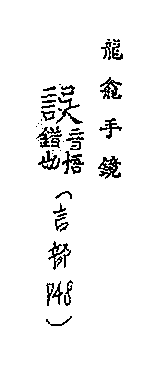 龍龕手鏡
誤音悟錯也(言部P48)